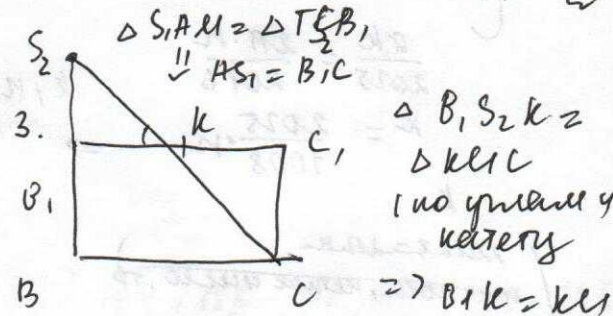 △ S₁AM = △ T B₁
⇓ AS₁ = B₁C
S₂
3.
K
C₁
B₁
B
C
△ B₁S₂K =
△ KC1C
(по углам и
катету
=> B1K = KC1